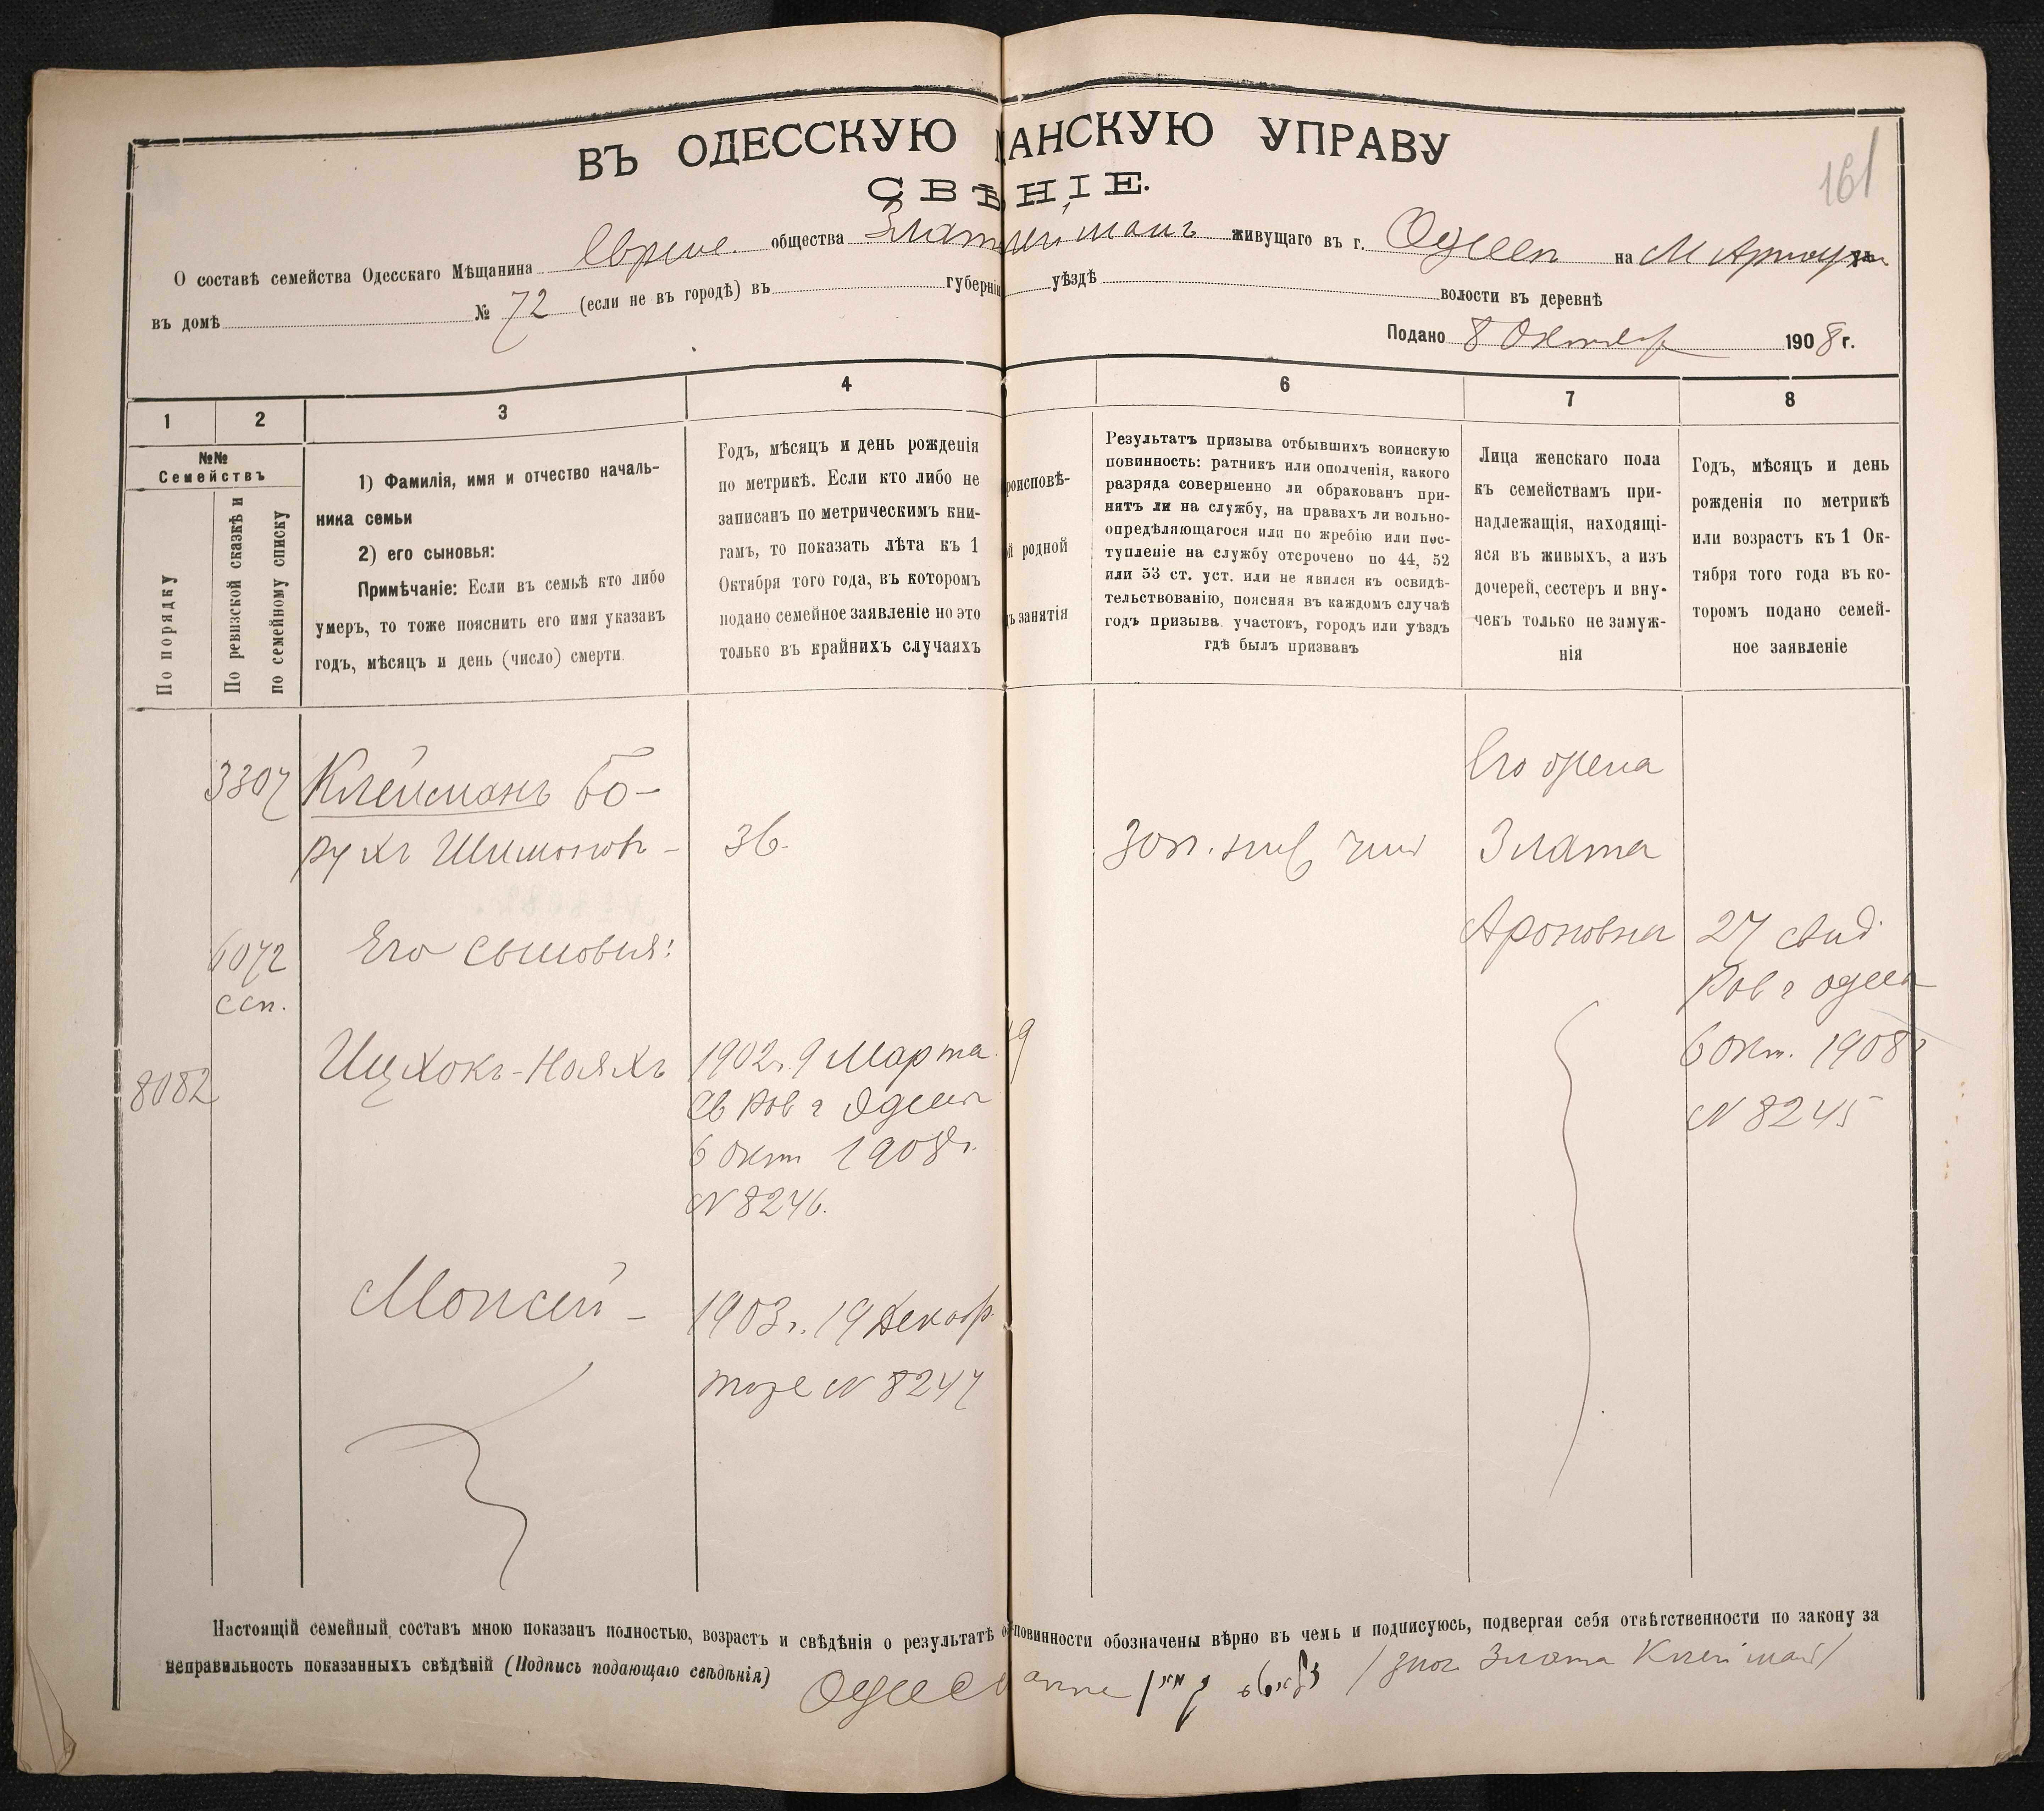 ВЪ ОДЕССКУЮ АНСКУЮ УПРАВУ
161
СВѢНІЕ.
О составѣ семейства Одесскаго Мѣщанина общества живущаго въ г. на М Арнаут
въ домѣ № 72 (если не въ городѣ) въ губерні уѣздѣ волости въ деревнѣ
Подано 8 Октября 1908 г.
1 2 3 4 6 7 8
№№
Семействъ
По порядку
По ревизской сказкѣ и
по семейному списку
1) Фамилія, имя и отчество началь-
ника семьи
2) его сыновья:
Примѣчаніе: Если въ семьѣ кто либо
умеръ, то тоже пояснить его имя указавъ
годъ, мѣсяцъ и день (число) смерти
Годъ, мѣсяцъ и день рожденія
по метрикѣ. Если кто либо не
записанъ по метрическимъ кни-
гамъ, то показать лѣта къ 1
Октября того года, въ которомъ
подано семейное заявленіе но это
только въ крайнихъ случаяхъ
роисповѣ-
й родной
ъ занятія
Результатъ призыва отбывшихъ воинскую
повинность: ратникъ или ополченія, какого
разряда совершенно ли обракованъ при-
нятъ ли на службу, на правахъ ли вольно-
опредѣляющагося или по жребію или пос-
тупленіе на службу отсрочено по 44, 52
или 53 ст. уст. или не явился къ освидѣ-
тельствованію, поясняя въ каждомъ случаѣ
годъ призыва участокъ, городъ или уѣздъ
гдѣ былъ призванъ
Лица женскаго пола
къ семействамъ при-
надлежащія, находящі-
яся въ живыхъ, а изъ
дочерей, сестеръ и вну-
чекъ только не замуж-
нія
Годъ, мѣсяцъ и день
рожденія по метрикѣ
или возрастъ къ 1 Ок-
тября того года въ ко-
торомъ подано семей-
ное заявленіе
3307
Клейманъ Бо-
рухъ Шимонов-
36.
зап. ниж чин
Его жена
Злата
Ароновна
27 свид
Рав г Одессы
6 Окт. 1908 г
N 8245
6072
ссп.
Его сыновья:
8082
Ицхокъ-Нояхъ
1902 г. 9 Марта
Св Рав г Одессы
6 Окт 1908 г.
N 8246.
Моисей -
1903 г. 19 Декабр
тоже N 8247
Настоящій семейный составъ мною показанъ полностью, возрастъ и свѣдѣнія о результатѣ о повинности обозначены вѣрно въ чемъ и подписуюсь, подвергая себя отвѣтственности по закону за
неправильность показанныхъ свѣдѣній (Подпись подающаго свѣдѣнія)
Злата Клейман/